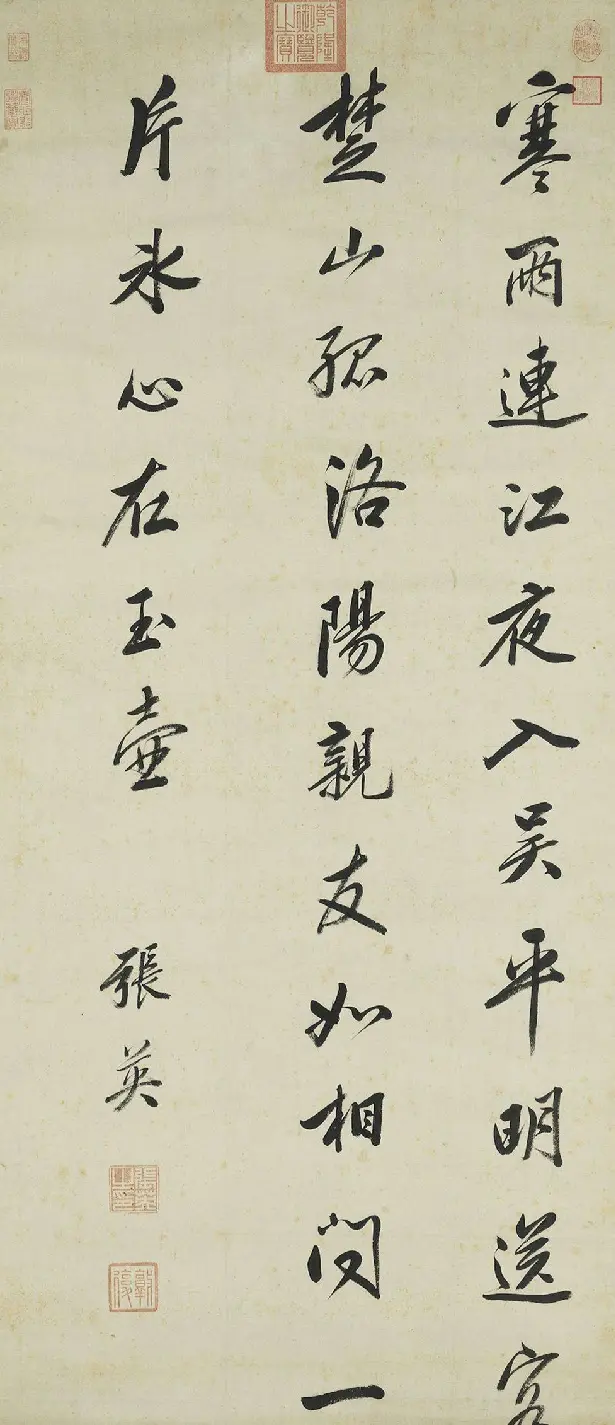 寒雨連江夜入吳平明送客
楚山孤洛陽親友如相問一
片冰心在玉壺
張英
乾隆御覽之寶